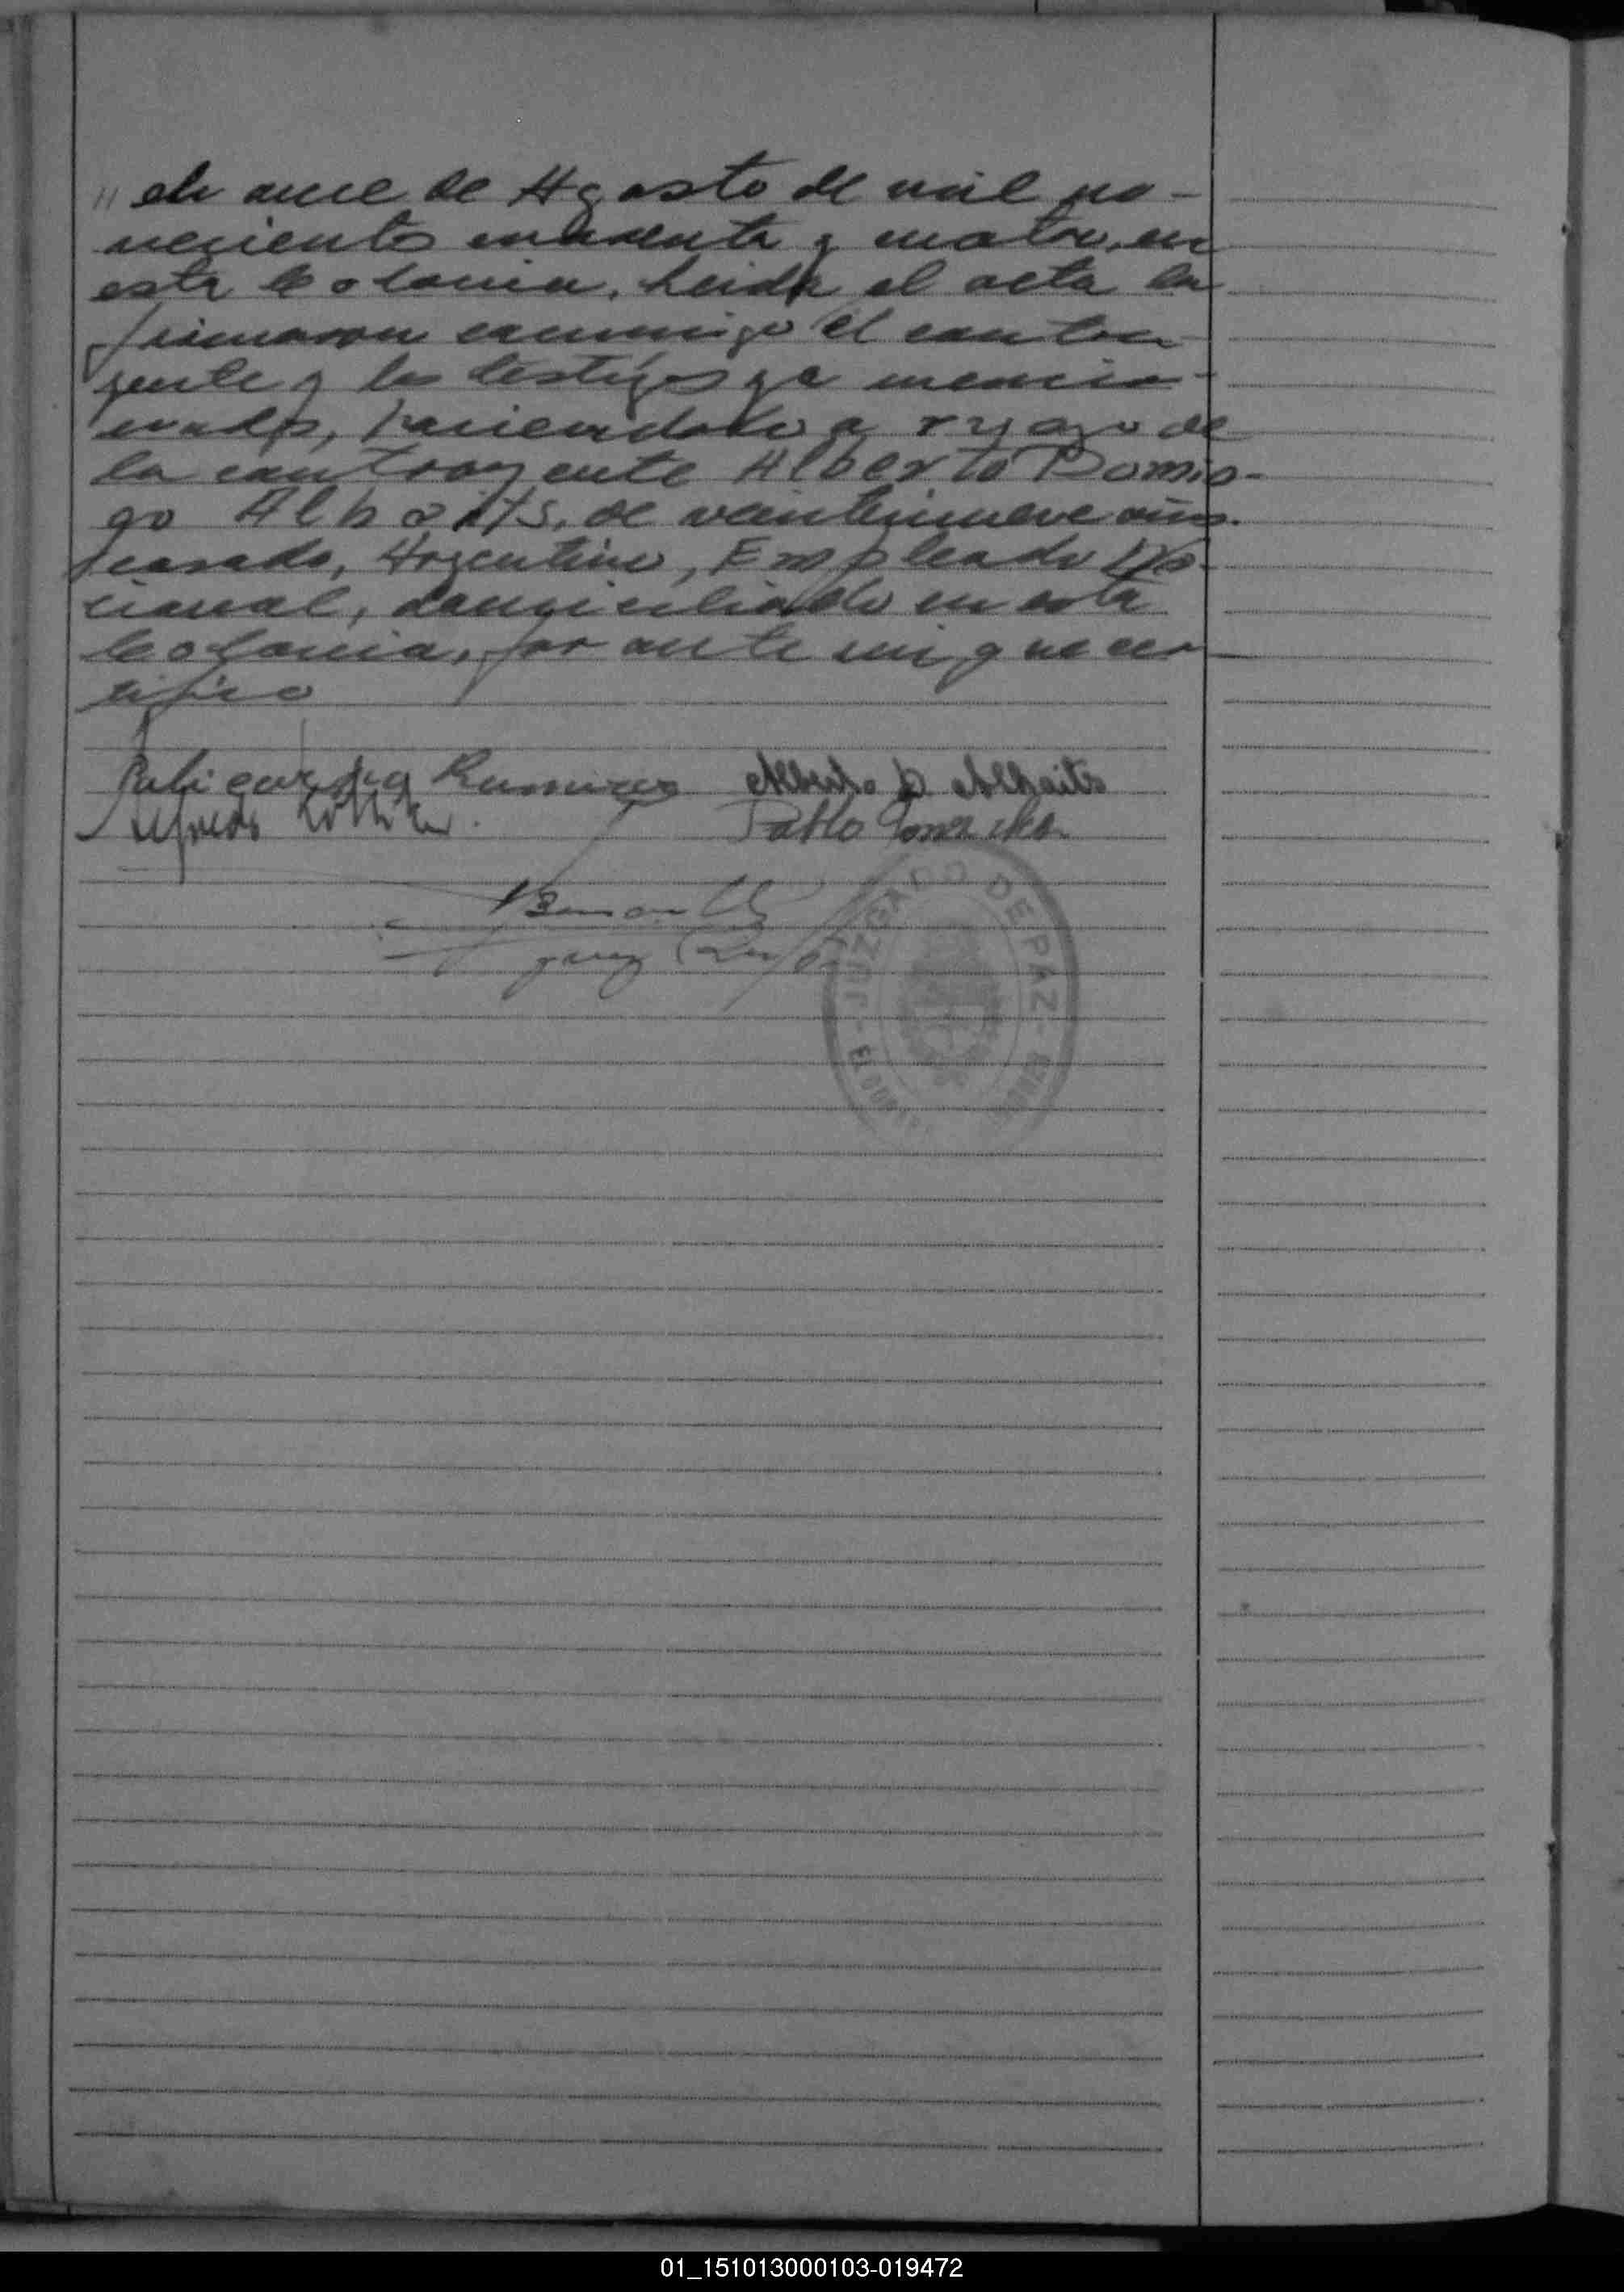 " el once de Agosto de mil no-
vecientos cuarenta y cuatro, en
esta Colonia. Leida el acta la
firmaron conmigo el contra-
yente y los testigos ya mencio-
nados, haciendolo a ruego de
la contrayente Alberto Domin-
go Alhaits, de veintinueve años.
casado, Argentino, Empleado Na-
cional, domiciliado en esta
Colonia, por ante mi que cer-
tifico
Ramirez Alberto D Alhaits
Alfredo Pablo
Juez
JUZGADO DE PAZ
01_151013000103-019472